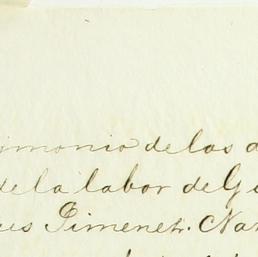 imonio de las d
de la labor de Gu
us Jimenez. Nar